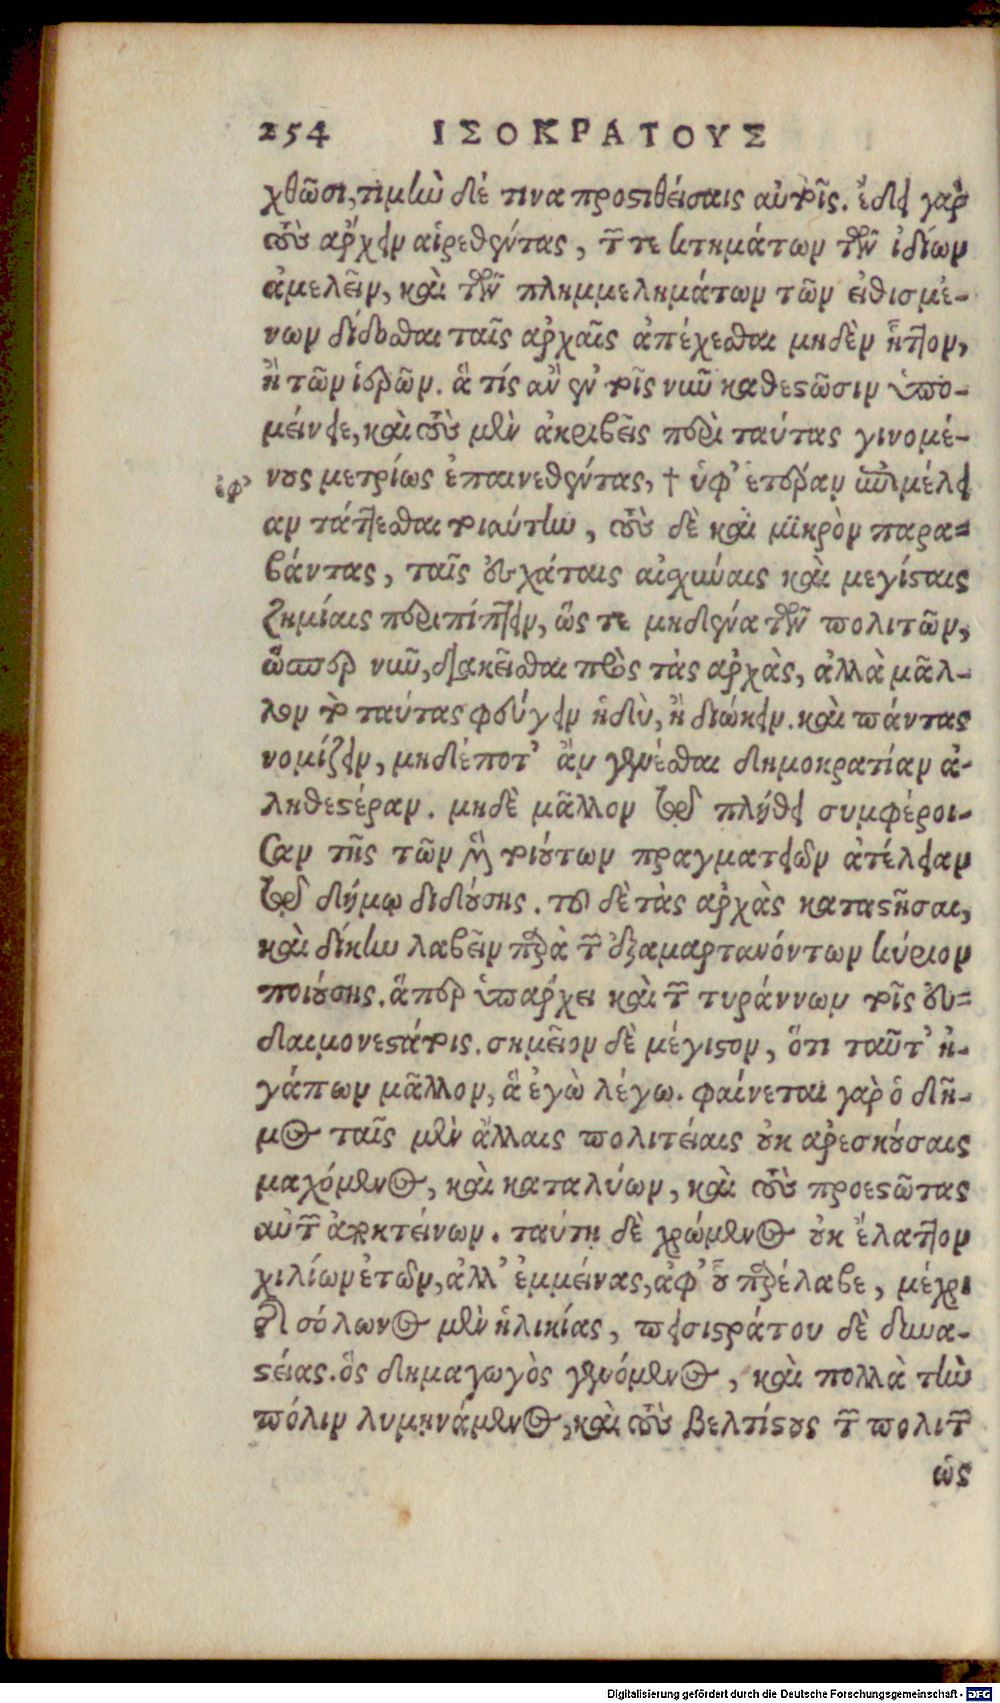 254 ΙΣΟΚΡΑΤΟΥΣ
χθῶσι, τιμὴν δέ τινα προσθείσαις αὐτοῖς. ἔδει γὰρ
τοὺς ἄρχειν αἱρεθέντας, τῶν τε κτημάτων τῶν ἰδίων
ἀμελεῖν, καὶ τῶν πλημμελημάτων τῶν εἰθισμέ-
νων δίδοσθαι ταῖς ἀρχαῖς ἀπέχεσθαι μηδὲν ἧττον,
ἢ τῶν ἱερῶν. ἃ τίς ἂν ἐν τοῖς νῦν καθεστῶσιν ὑπο-
μείνειε, καὶ τοὺς μὲν ἀκριβεῖς περὶ ταύτας γινομέ-
νους μετρίως ἐπαινεθέντας, † ὑφ' ἑτέραν ἐπιμέλει
ἐφ'
αν τάττεσθαι τοιαύτην, τοὺς δὲ καὶ μικρὸν παρα-
βάντας, ταῖς ἐσχάταις αἰσχύναις καὶ μεγίσταις
ζημίαις περιπίπτειν, ὥς τε μηδένα τῶν πολιτῶν,
ὥσπερ νῦν, διακεῖσθαι πρὸς τὰς ἀρχὰς, ἀλλὰ μᾶλ-
λον τὸ ταύτας φεύγειν ἡδὺ, ἢ διώκειν. καὶ πάντας
νομίζειν, μηδέποτ' ἂν γενέσθαι δημοκρατίαν ἀ-
ληθεστέραν. μηδὲ μᾶλλον τῷ πλήθει συμφέρου-
σαν τῆς τῶν μὲν τοιούτων πραγματειῶν ἀτέλειαν
τῷ δήμῳ διδούσης. τοῦ δὲ τὰς ἀρχὰς καταστῆσαι,
καὶ δίκην λαβεῖν παρὰ τῶν ἐξαμαρτανόντων κύριον
ποιούσης. ἅπερ ὑπάρχει καὶ τῶν τυράννων τοῖς εὐ-
δαιμονεστάτοις. σημεῖον δὲ μέγιστον, ὅτι ταῦτ' ἠ-
γάπων μᾶλλον, ἃ ἐγὼ λέγω. φαίνεται γὰρ ὁ δῆ-
μος ταῖς μὲν ἄλλαις πολιτείαις οὐκ ἀρεσκούσαις
μαχόμενος, καὶ καταλύων, καὶ τοὺς προεστῶτας
αὐτῶν ἀποκτείνων. ταύτῃ δὲ χρώμενος οὐκ ἔλαττον
χιλίων ἐτῶν, ἀλλ' ἐμμείνας, ἀφ' οὗ παρέλαβε, μέχρι
τῆς σόλωνος μὲν ἡλικίας, πεισιστράτου δὲ δυνα-
στείας. ὃς δημαγωγὸς γενόμενος, καὶ πολλὰ τὴν
πόλιν λυμηνάμενος, καὶ τοὺς βελτίστους τῶν πολιτῶν
ὡς
Digitalisierung gefördert durch die Deutsche Forschungsgemeinschaft - DFG